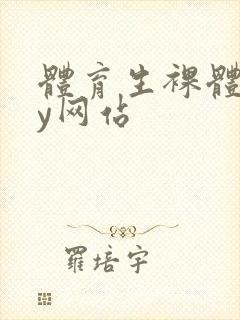 體育生裸體
y网佔
羅培宇